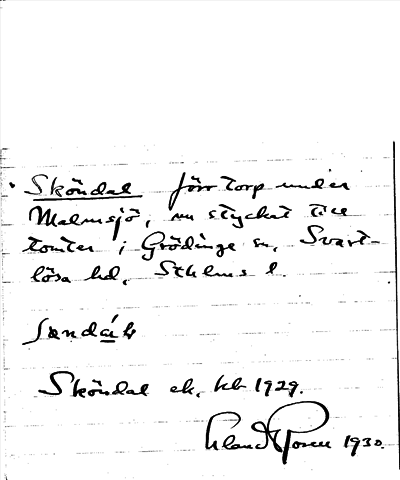 Sköndal förr torp under
Malmsjö, nu styckat till
tomter i Grödinge sn, Svart-
lösa hd, Sthlms l.
Sköndal ek. kb 1929.
Rosen 1930.